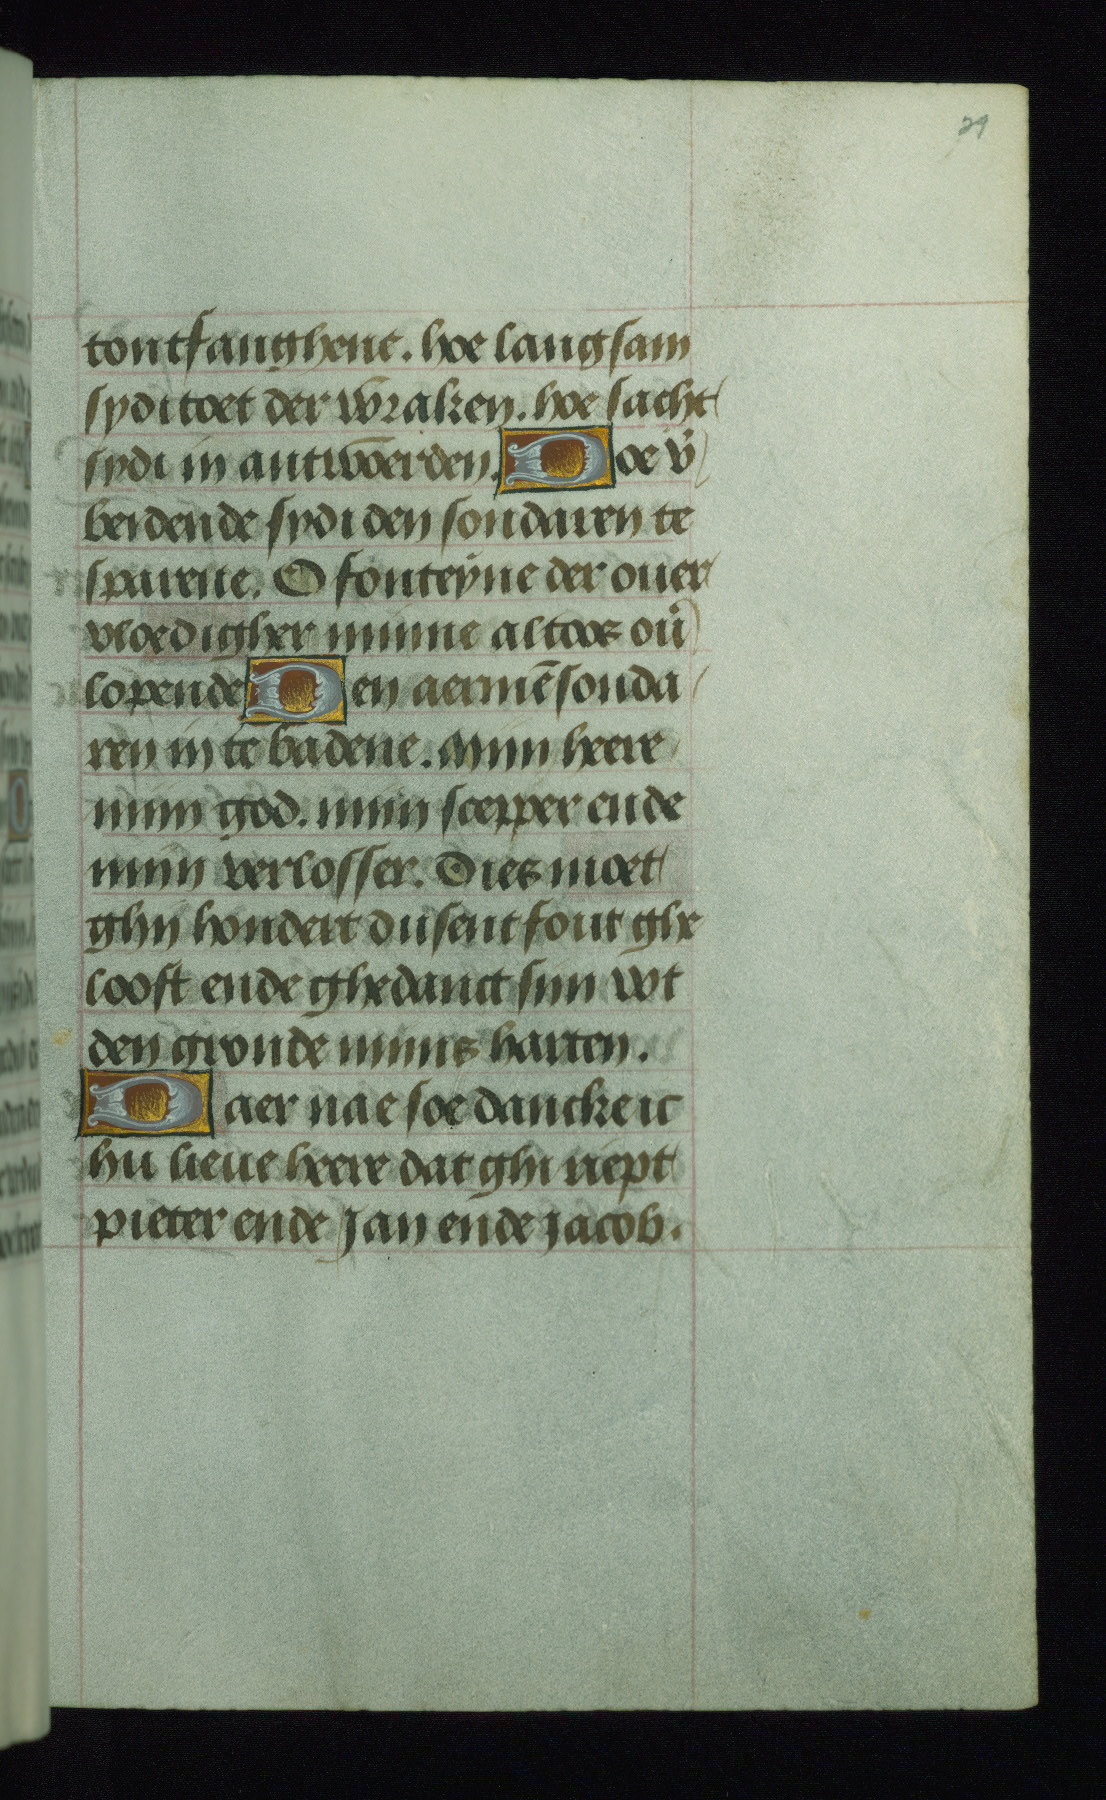 29
tontfanghene. hoe langsam
sydi toet der wraken. hoe sacht
sydi in antwoerden. Doe v̄
beidende sydi den sondaren te
sparene. O fonteyne der ouer
vloedigher minne altoos ou᷑
lopende Den aermē sonda
ren in te badene. Mijn heere
mijn god. mijn scepper ende
mijn verlosser. Dies moet
ghij hondert dusent fout ghe
looft ende ghedanct sijn wt
den gronde mijns harten.
Daer nae soe dancke ic
hu lieue heere dat ghi riept
pieter ende Jan ende Jacob.